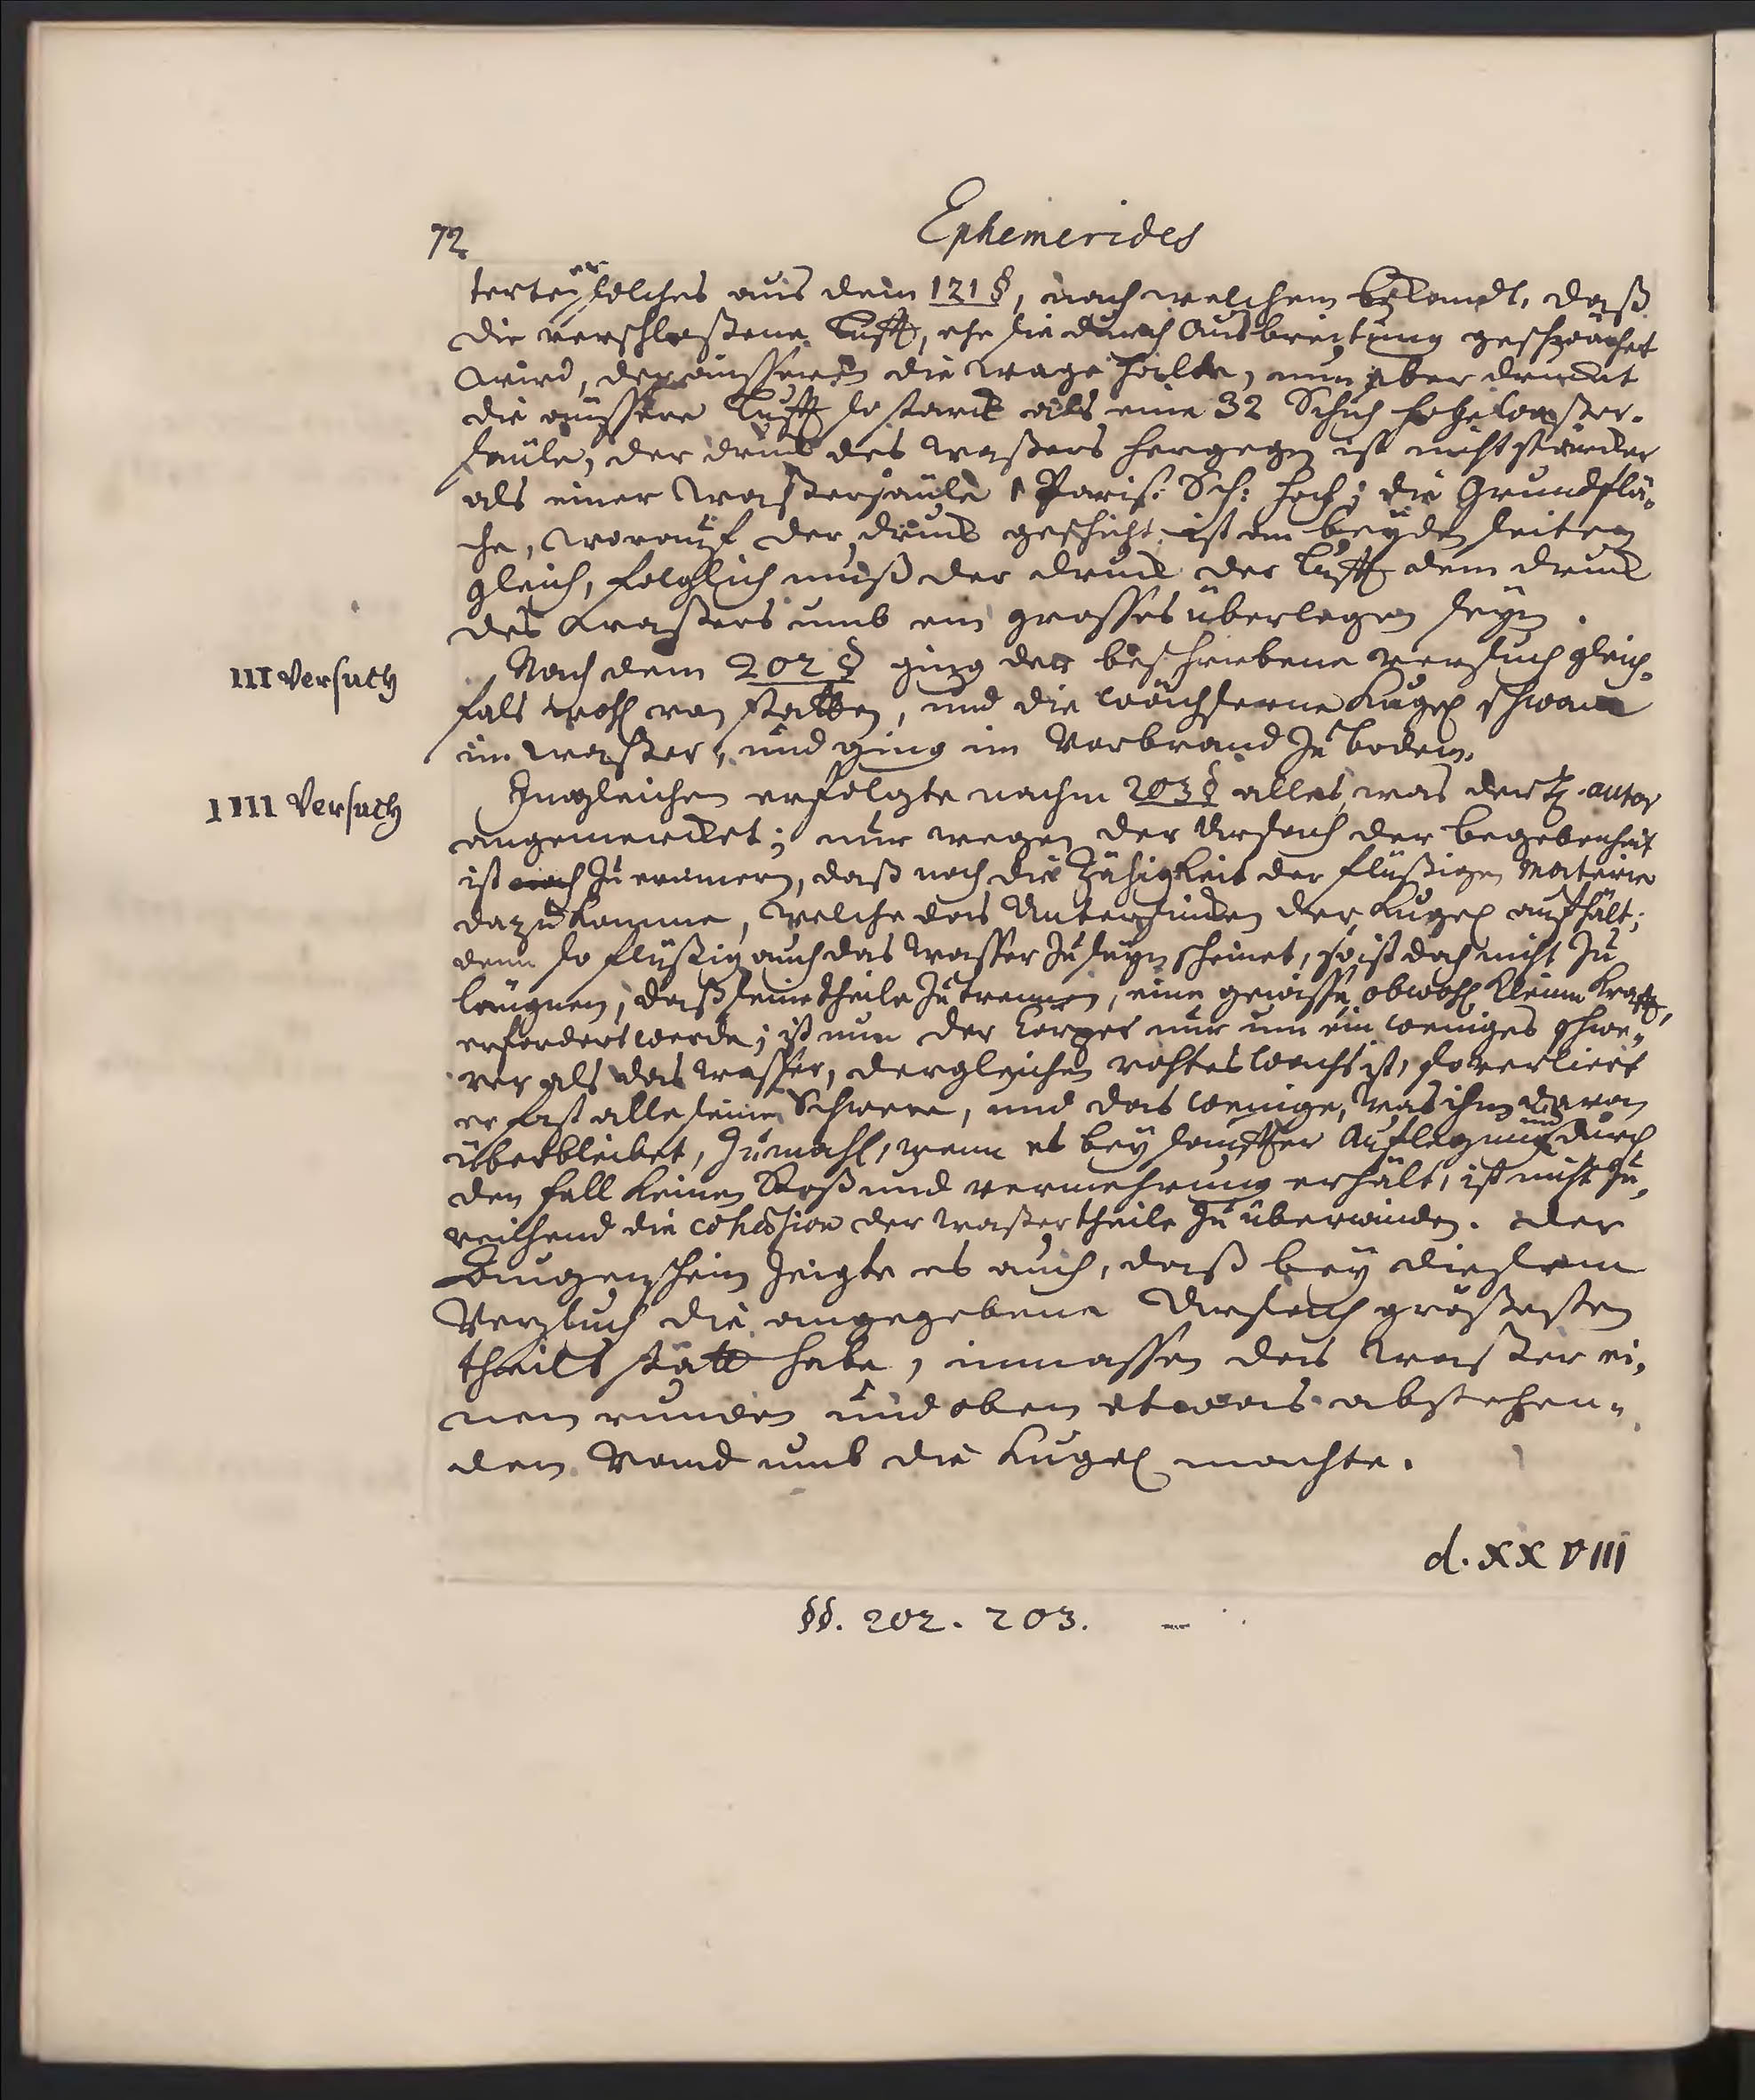 72
Ephemerides
terte er solches aus dem 121 §, nach welchem bekandt, daß
die verschloßene Lufft, ehe sie durch Ausbreitung geschwächet
wird, der äusseren die wage halte, nun aber drucket
die äussere Lufft so starck als eine 32 Schuh hohe waßer-
säule, der druck des waßers hergegen ist nicht stärcker
als einer waßersäule 1 Paris: Sch: hoch; die Grundflä-
che, worauf der druck geschicht ist an beyden seiten
gleich, folglich muß der druck der Lufft dem druck
des waßers umb ein grosses überlegen seyn.
III Versuch
Nach dem 202 § ging der beschriebene versuch gleich-
fals wohl von statten, und die wächserne Kugel schwam
im waßer, und ging im Vorbrand zu boden.
IIII Versuch
Ingleichen erfolgte nachm 203 § alles, was der H. autor
angemercket; nur wegen der Ursach der begebenheit
ist noch zu erinnern, daß noch die Zähigkeit der flüßigen Materie
dazu komme, welche das Untersincken der Kugel aufhält;
denn so flüßig auch das wasser zu seyn scheinet, so ist doch nicht zu
läugnen, daß seine theile zu trennen, eine gewisse, obwohl kleine Krafft,
erfordert werde; ist nun der Corper nur um ein weniges schwe-
rer als das wasser, dergleichen rohtes wachs ist, so verliert
er fast alle seine Schwere, und das wenige, was ihm davon
überbleibet, zumahl, wenn es bey sanffter Auflegung und durch
den fall keinen Stoß und vermehrung erhält, ist nicht zu-
reichend die cohæsion der waßertheile zu überwinden. Der
Augenschein zeigte es auch, daß bey diesem
Versuch die angegebene Ursach größesten
theils statt habe, immassen das waßer ei-
nen runden und oben etwas abstehen-
den Rand umb die Kugel machte.
d. XXVIII
§§. 202. 203.